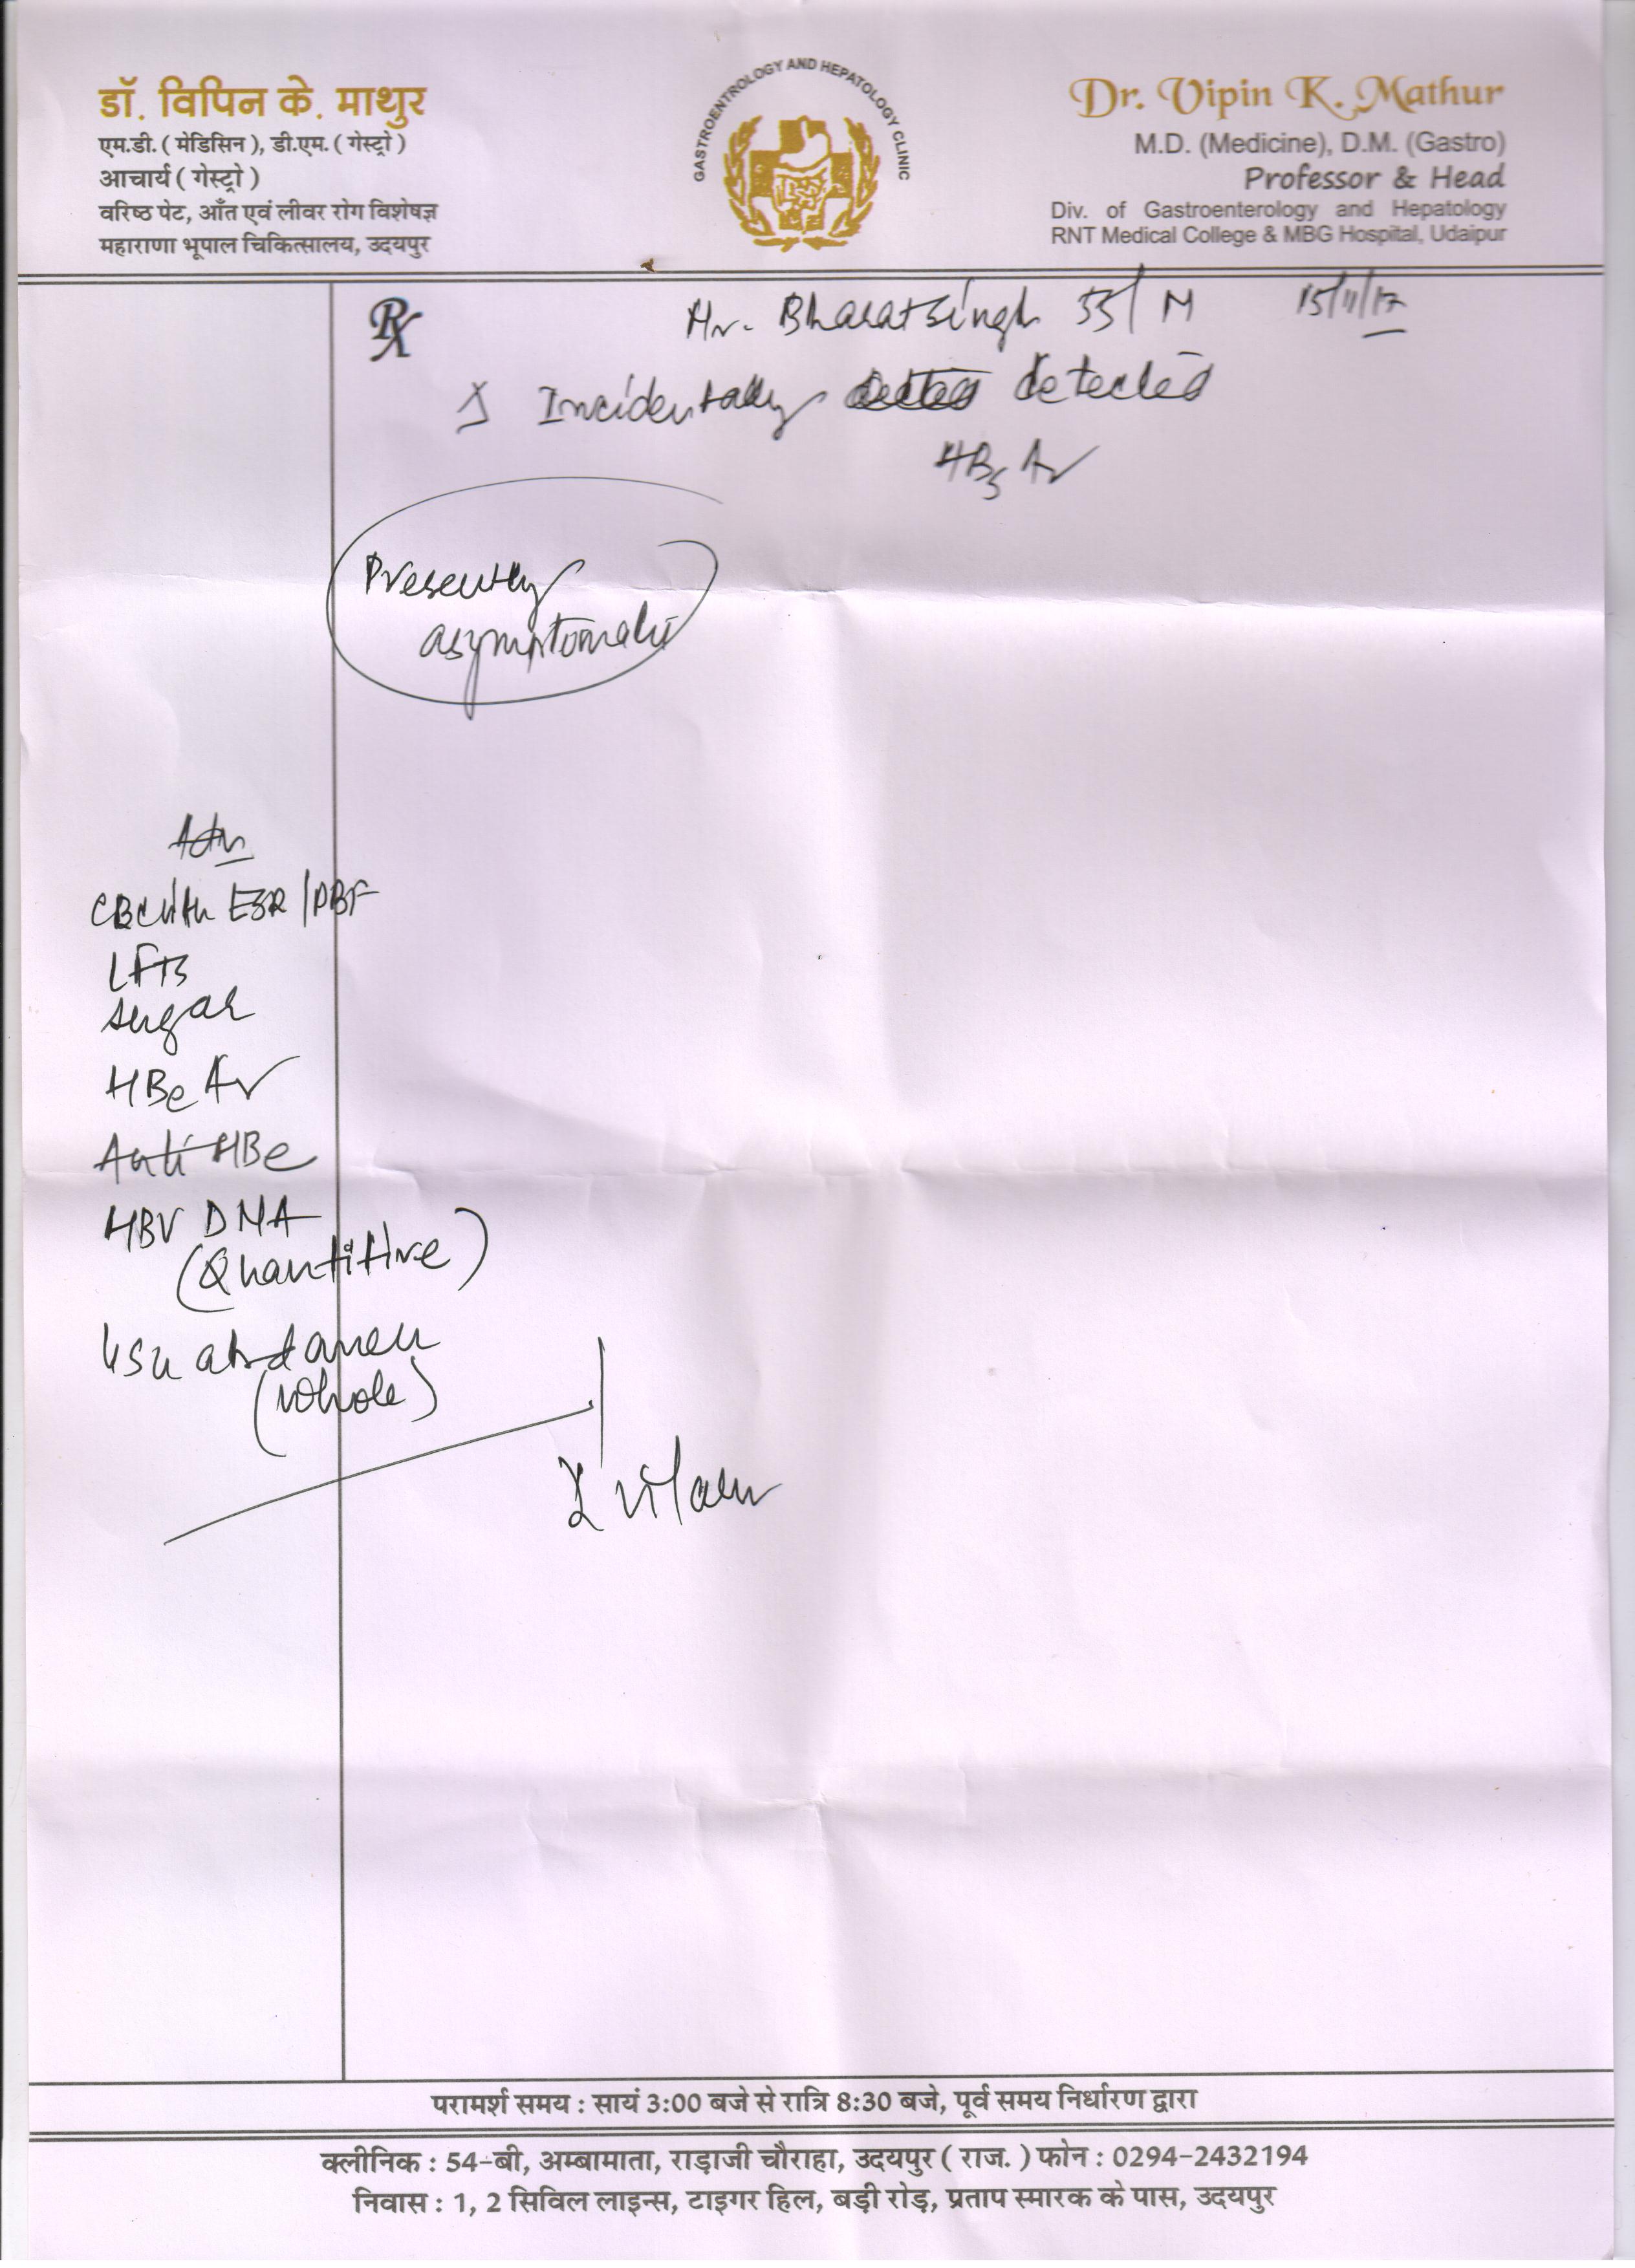 डॉ. विपिन के. माथुर
एम.डी. ( मेडिसिन ), डी.एम. ( गेस्ट्रो )
आचार्य ( गेस्ट्रो )
वरिष्ठ पेट, आँत एवं लीवर रोग विशेषज्ञ
महाराणा भूपाल चिकित्सालय, उदयपुर
GASTROENTROLOGY AND HEPATOLOGY CLINIC
Dr. Vipin K. Mathur
M.D. (Medicine), D.M. (Gastro)
Professor & Head
Div. of Gastroenterology and Hepatology
RNT Medical College & MBG Hospital, Udaipur
Rx
Mr. Bharat Singh 55/M 15/11/17
Incidentally detected
HBsAg
Presently
asymptomatic
Adv
CBC with ESR/PBF
LFTs
Sugar
HBeAg
Anti HBe
HBV DNA
(Quantitive)
USG abdomen
(Whole)
परामर्श समय : सायं 3:00 बजे से रात्रि 8:30 बजे, पूर्व समय निर्धारण द्वारा
क्लीनिक : 54-बी, अम्बामाता, राड़ाजी चौराहा, उदयपुर ( राज. ) फोन : 0294-2432194
निवास : 1, 2 सिविल लाइन्स, टाइगर हिल, बड़ी रोड़, प्रताप स्मारक के पास, उदयपुर